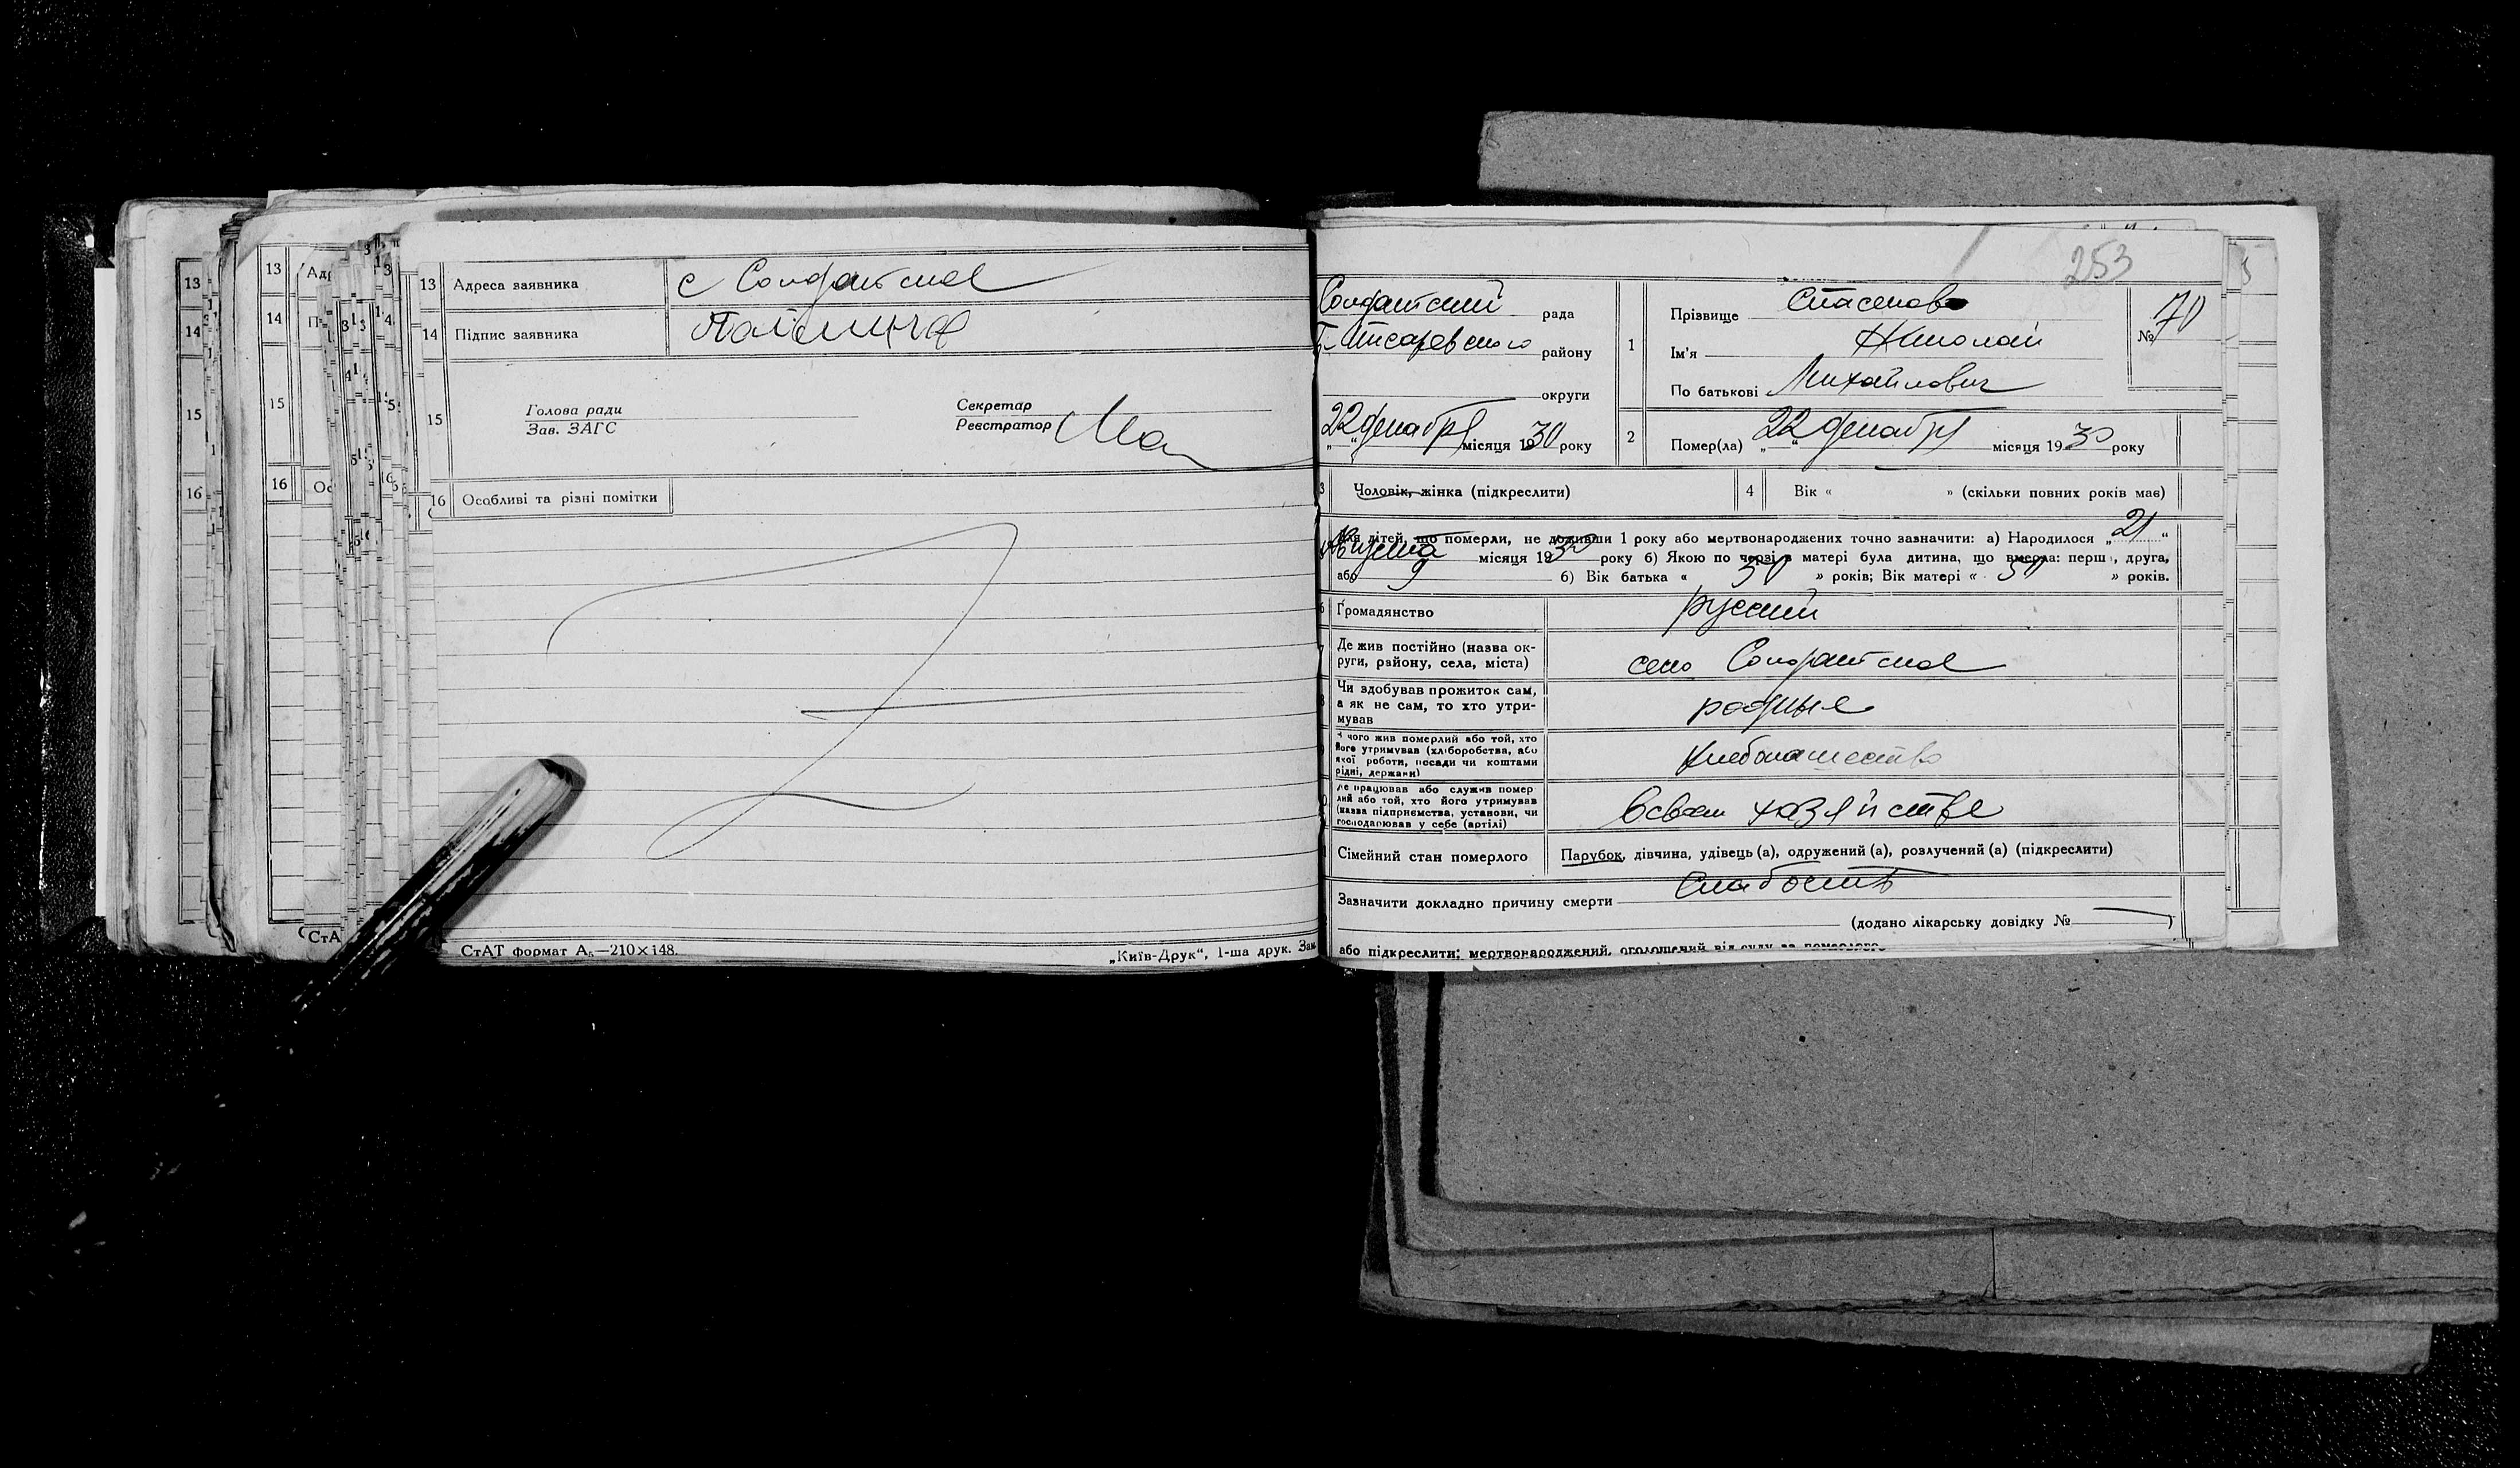 13 Адреса заявника с Солдатское
14 Підпис заявника
15 Голова ради
Зав. ЗАГС
Секретар
Реєстратор
16 Особливі та різні помітки
СтАТ формат А₅—210×148.
„Київ-Друк“, 1-ша друк. Зам
253
Солдатский рада
Писаревского району
округи
„22“ декабря місяця 1930 року
1 Прізвище Стасенков
Ім'я Николай
По батькові Михайлович
№ 70
2 Помер(ла) „22“ декабря місяця 1930 року
3 Чоловік, жінка (підкреслити)
4 Вік « » (скільки повних років має)
Для дітей, що померли, не доживши 1 року або мертвонароджених точно зазначити: а) Народилося „21“
Августа місяця 1930 року б) Якою по черзі в матері була дитина, що вмерла: перша, друга,
або 9 б) Вік батька « 50 » років; Вік матері « 50 » років.
6 Громадянство русский
7 Де жив постійно (назва ок-
руги, району, села, міста) село Солдатское
8 Чи здобував прожиток сам,
а як не сам, то хто утри-
мував родные
З чого жив померлий або той, хто
його утримував (хліборобства, або
якої роботи, посади чи коштами
рідні, держави) хлебопашество
Де працював або служив помер
лий або той, хто його утримував
(назва підприємства, установи, чи
господарював у себе (артілі) всвоем хазяйстве
Сімейний стан померлого Парубок, дівчина, удівець (а), одружений (а), розлучений (а) (підкреслити)
Зазначити докладно причину смерти Слабость
(додано лікарську довідку № )
або підкреслити: мертвонароджений, оголошений від суду за померлого.